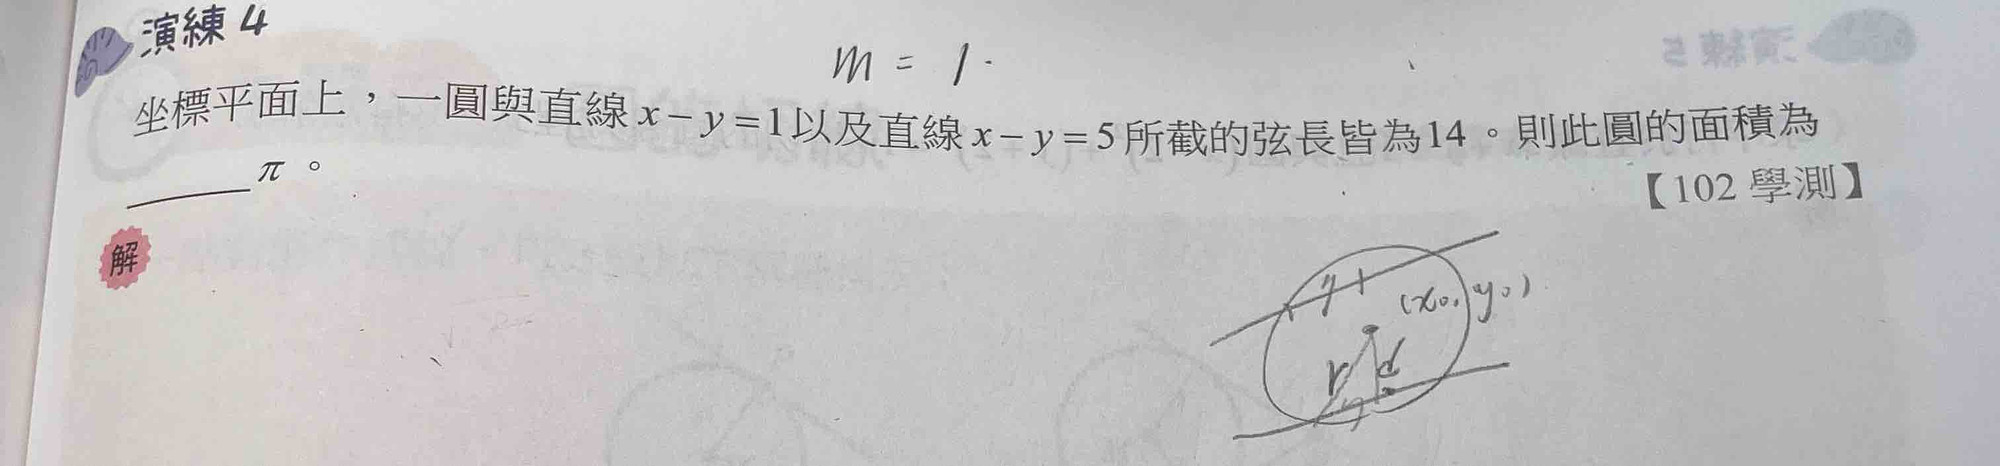 演練 4
m = 1.
坐標平面上,一圓與直線 x − y = 1 以及直線 x − y = 5 所截的弦長皆為14。則此圓的面積為
______ π 。
【102 學測】
解
7
(x₀, y₀)
r d
7